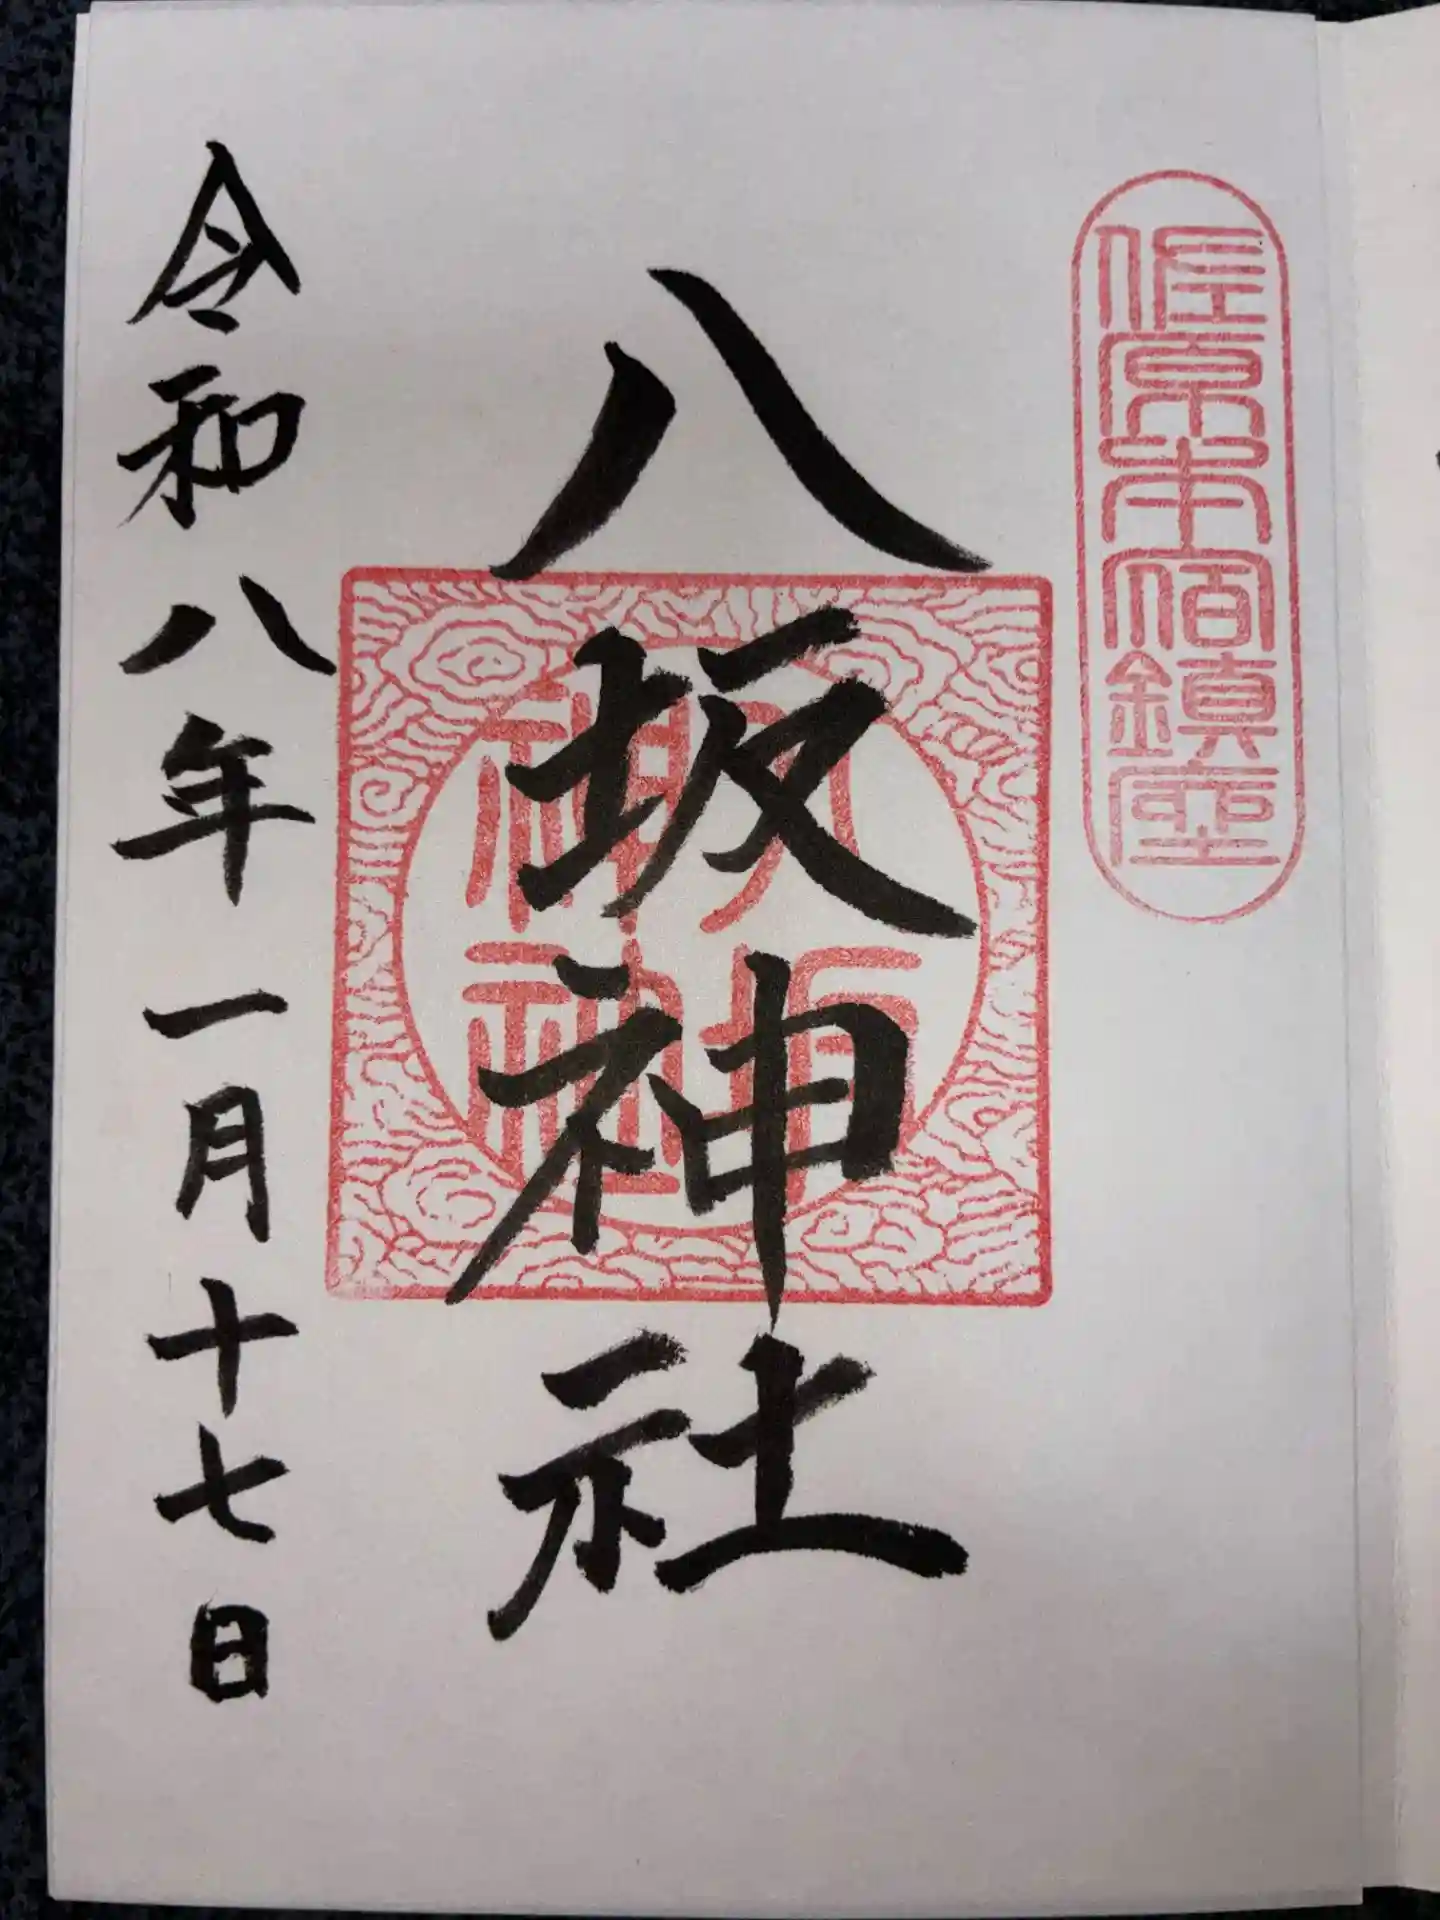 佐原本宿鎮座
八坂神社
八坂
神社
令和八年一月十七日